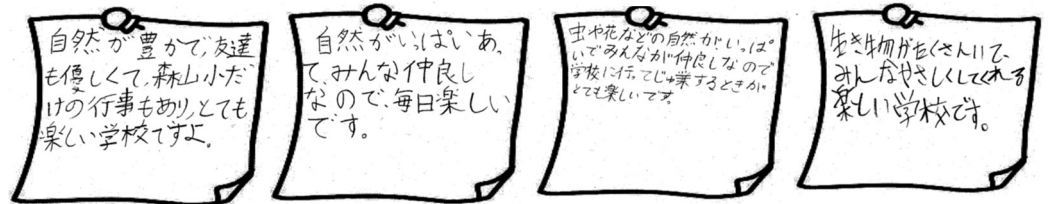 自然が豊かで、友達
も優しくて、森山小だ
けの行事もあり、とても
楽しい学校ですよ。
自然がいっぱいあっ
て、みんな仲良し
なので、毎日楽しい
です。
虫や花などの自然がいっぱ
いでみんなが仲良しなので
学校に行ってじゅ業するときが
とても楽しいです。
生き物がたくさんいて、
みんなやさしくしてくれる
楽しい学校です。